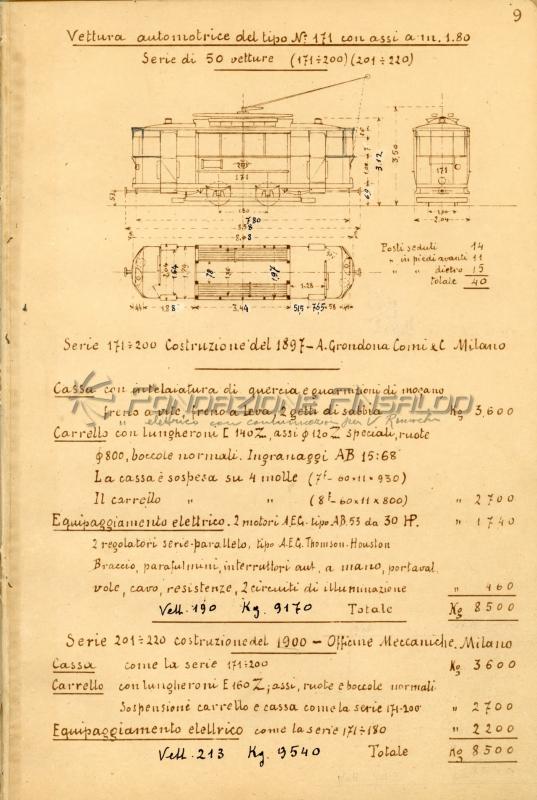 9
Vettura automotrice del tipo N.º 171 con assi a m. 1.80
Serie di 50 vetture (171÷200) (201÷220)
201
171
171
3.12
3.50
1.80
7.80
8.38
8.68
2.04
2.04
1.64
.78
1.97
1.28
44
1.88
3.44
515
765
58
44
Posti seduti 14
" in piedi avanti 11
" " dietro 15
Totale 40
Serie 171÷200 Costruzione del 1897 - A. Grondona Comi & C Milano
FONDAZIONE ANSALDO
Cassa con intelaiatura di quercia e guarnizioni di mogano
freno a vite, freno a leva, 2 getti di sabbia Kg 3,600
" elettrico con combinazioni per V.
Carrello con lungheroni E 140 Z, assi φ 120 Z speciali, ruote
φ800, boccole normali. Ingranaggi AB 15:68
La cassa è sospesa su 4 molle (7f - 60×11×930)
Il carrello " " (8f - 60×11×800) " 2700
Equipaggiamento elettrico. 2 motori A.E.G. tipo AB.53 da 30 HP. " 1740
2 regolatori serie-parallelo, tipo A.E.G. Thomson-Houston
Braccio, parafulmini, interruttori aut. a mano, portaval
vole, cavo, resistenze, 2 circuiti di illuminazione " 460
Vett. 190 Kg. 9170 Totale Kg 8500
Serie 201÷220 costruzione del 1900 - Officine Meccaniche, Milano
Cassa come la serie 171÷200 Kg 3600
Carrello con lungheroni E 160 Z; assi, ruote e boccole normali
Sospensione carrello e cassa come la serie 171-200 " 2700
Equipaggiamento elettrico come la serie 171÷180 " 2200
Vett. 213 Kg. 9540 Totale Kg 8500